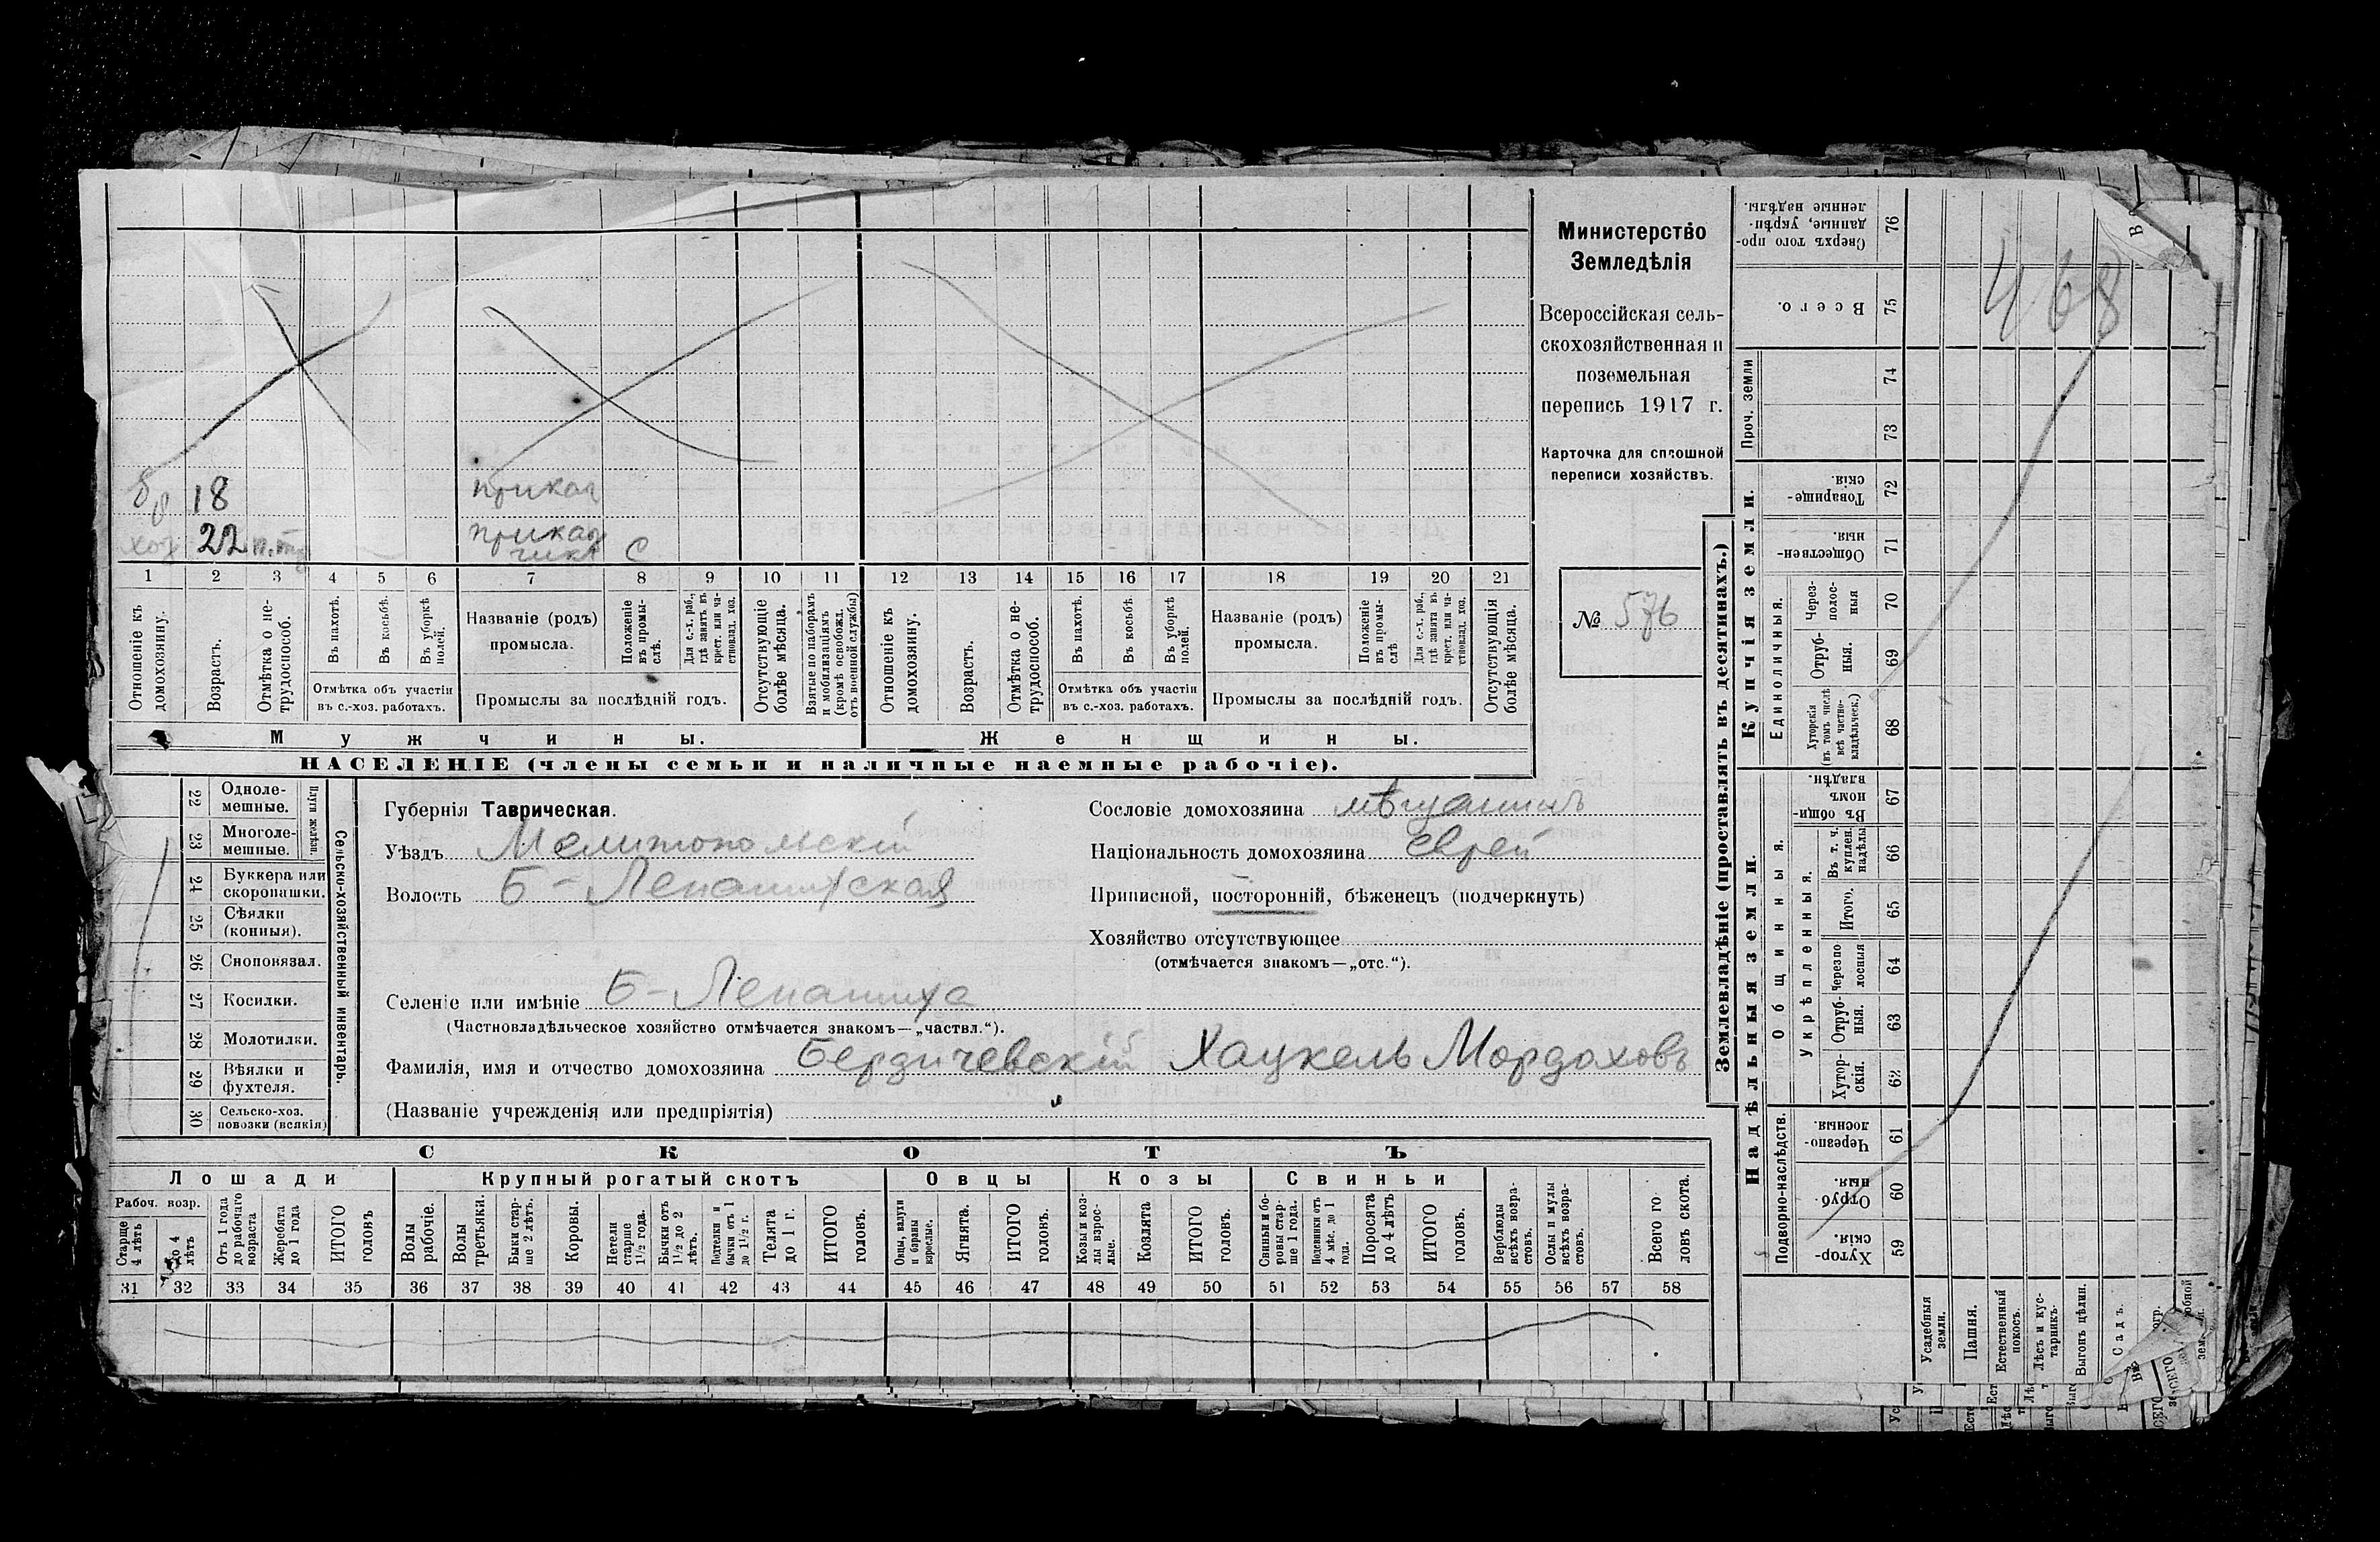 Министерство
Земледѣлія
Всероссійская сель-
скохозяйственная и
поземельная
перепись 1917 г.
Карточка для сплошной
переписи хозяйствъ.
№ 576
468
бр 18 прикащ
хоз 22 прикащ
чикъ С
1 2 3 4 5 6 7 8 9 10 11 12 13 14 15 16 17 18 19 20 21
Отношеніе къ домохозяину.
Возрастъ.
Отмѣтка о не-трудоспособ.
Въ пахотѣ.
Въ косьбѣ.
Въ уборкѣ полей.
Отмѣтка объ участіи
въ с.-хоз. работахъ.
Названіе (родъ)
промысла.
Положеніе въ промы-слѣ.
Для с.-х. раб., гдѣ занятъ въ крест. или ча-стновлад. хоз.
Промыслы за послѣдній годъ.
Отсутствующіе болѣе мѣсяца.
Взятые по наборамъ и мобилизаціямъ (кромѣ освобожд. отъ военной службы)
Отношеніе къ домохозяину.
Возрастъ.
Отмѣтка о не-трудоспособ.
Въ пахотѣ.
Въ косьбѣ.
Въ уборкѣ полей.
Отмѣтка объ участіи
въ с.-хоз. работахъ.
Названіе (родъ)
промысла.
Положеніе въ промы-слѣ
Для с.-х. раб., гдѣ занята въ крест. или ча-стновлад. хоз.
Промыслы за послѣдній годъ.
Отсутствующія болѣе мѣсяца.
Мужчины.
Женщины.
НАСЕЛЕНІЕ (члены семьи и наличные наемные рабочіе).
22 Одноле-мешные.
23 Многоле-мешные.
Плуги желѣзн.
24 Буккера или скоропашки.
25 Сѣялки (конныя).
26 Сноповязал.
27 Косилки.
28 Молотилки.
29 Вѣялки и фухтеля.
30 Сельско-хоз. повозки (всякія)
Сельско-хозяйственный инвентарь.
Губернія Таврическая.
Уѣздъ Мелитопольскій
Волость Б-Лепатихская
Сословіе домохозяина мѣщанинъ
Національность домохозяина еврей
Приписной, посторонній, бѣженецъ (подчеркнуть)
Хозяйство отсутствующее
(отмѣчается знакомъ—„отс.“).
Селеніе или имѣніе Б-Лепатиха
(Частновладѣльческое хозяйство отмѣчается знакомъ—„частвл.“).
Фамилія, имя и отчество домохозяина Бердичевскій Хацкель Мордоховъ
(Названіе учрежденія или предпріятія)
СКОТЪ
Лошади
Крупный рогатый скотъ
Овцы
Козы
Свиньи
Рабоч. возр.
Старше 4 лѣтъ
до 4 лѣтъ
Отъ 1 года до рабочаго возраста
Жеребята до 1 года
ИТОГО головъ
Волы рабочіе.
Волы третьяки.
Быки стар-ше 2 лѣтъ.
Коровы.
Нетели старше 1½ года.
Бычки отъ 1½ до 2 лѣтъ.
Подтелки и бычки отъ 1 до 1½ г.
Телята до 1 г.
ИТОГО головъ.
Овцы, валухи и бараны взрослые.
Ягнята.
ИТОГО головъ.
Козы и коз-лы взрос-лые.
Козлята
ИТОГО головъ.
Свиньи и бо-ровы стар-ше 1 года.
Подсвинки отъ 4 мѣс. до 1 года.
Поросята до 4 лѣтъ
ИТОГО головъ.
Верблюды всѣхъ возра-стовъ.
Ослы и мулы всѣхъ возра-стовъ.
Всего го ловъ скота.
31 32 33 34 35 36 37 38 39 40 41 42 43 44 45 46 47 48 49 50 51 52 53 54 55 56 57 58
Землевладѣніе (проставлять въ десятинахъ.)
Купчія земли.
Надѣльныя земли.
Проч. земли
Единоличныя.
Общинныя.
Укрѣпленныя.
Подворно-наслѣдств.
Сверхъ того про-данные, укрѣп-ленные надѣлы. 76
Всего. 75
74
73
Товарище-скія. 72
Обществен-ныя. 71
Через-полос-ныя 70
Отруб-ныя. 69
Хуторскія (въ томъ числѣ всѣ частно-владѣльческ.) 68
Въ общи-номъ владѣн. 67
Въ т. ч. куплен. надѣлы 66
Итого. 65
Черезпо лосныя 64
Отруб-ныя. 63
Хутор-скія. 62
Черезпо-лосныя 61
Отруб-ныя. 60
Хутор-скія. 59
Усадебныя земли.
Пашня.
Естественный покосъ.
Лѣсъ и кус-тарникъ.
Выгонъ цѣлин.
Садъ.